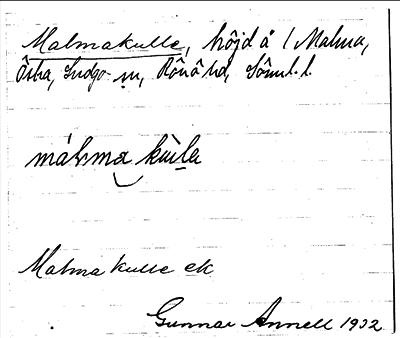 Malmakulle, höjd å 1 Malma,
Ösba, Ludgo sn, Rönö hd, Söml. l.
málma kùla
Malma kulle ek
Gunnar Annell 1932